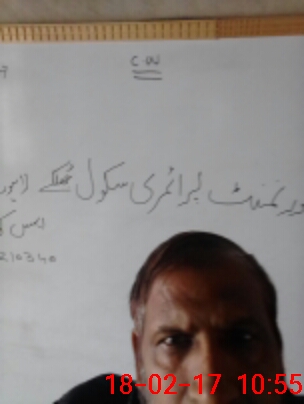 C.W
گورنمنٹ پرائمری سکول ٹھلکے لاہور
210340
18-02-17 10:55